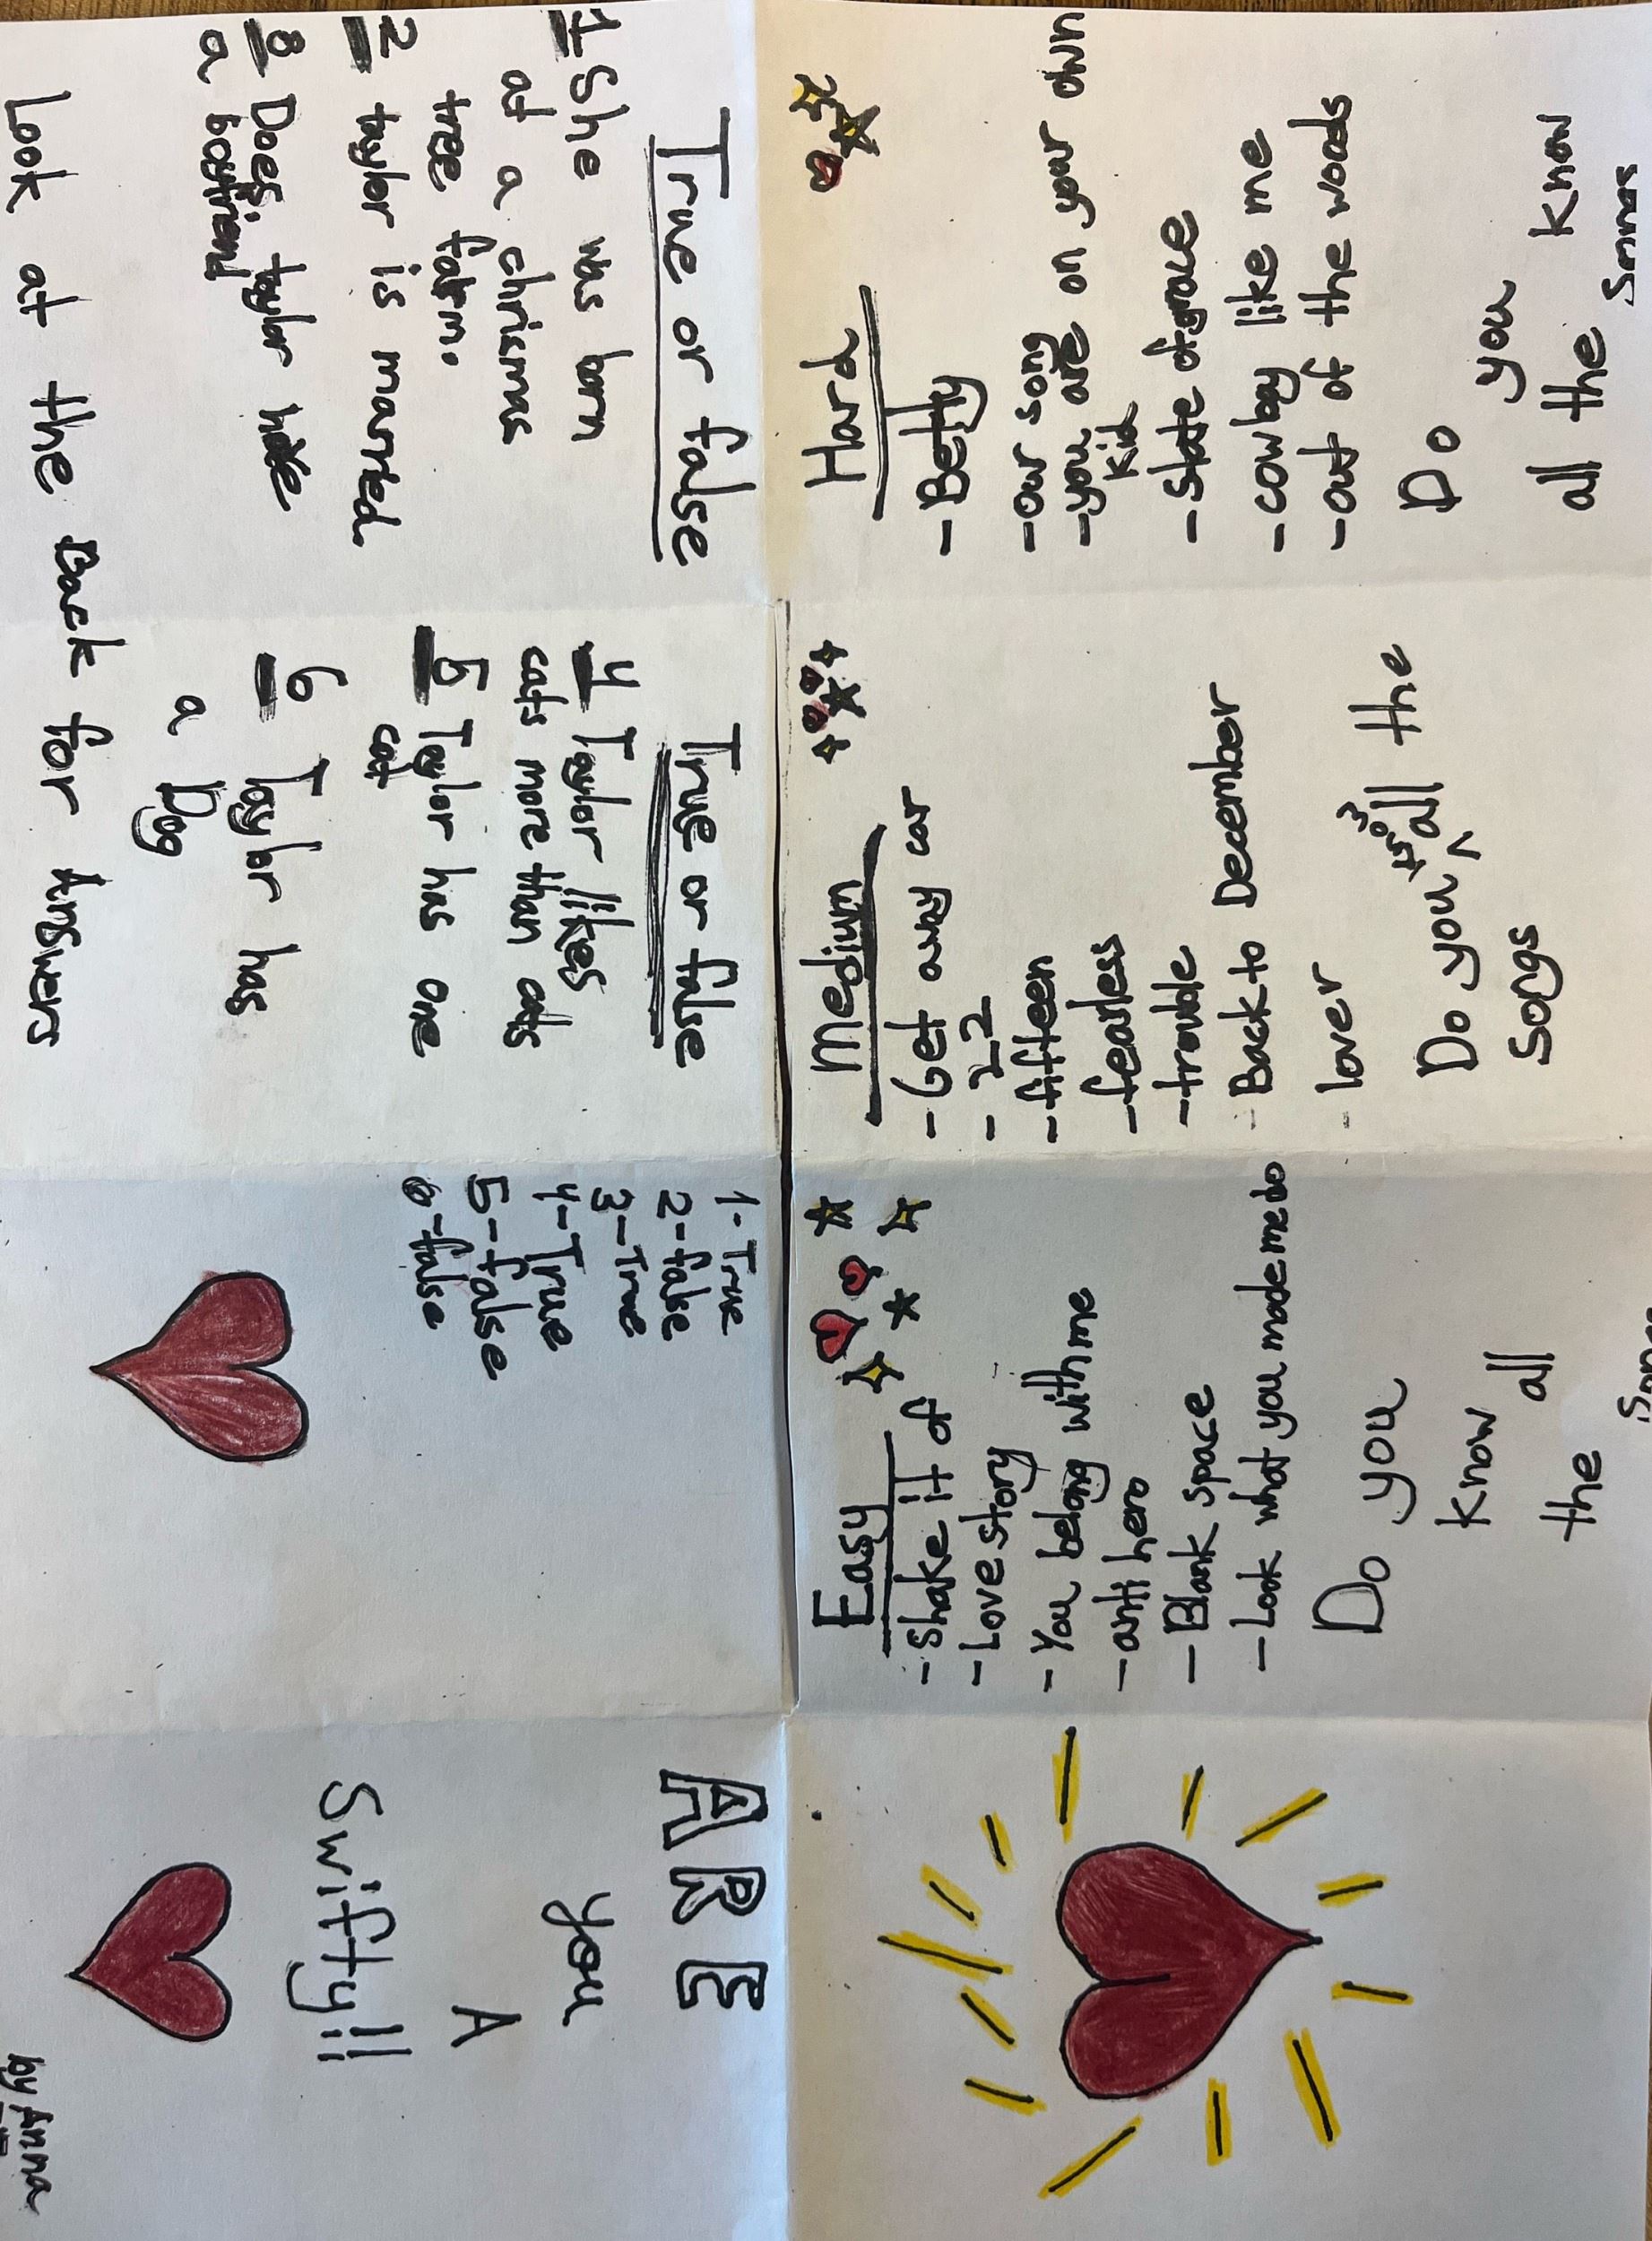 ARE
you
A
Swifty!!
by Anna
Easy
- Shake it of
- Love story
- You belong with me
- anti hero
- Blank space
- Look what you made me do
Do you
know
all
the
Songs
Medium
- Get away car
- 22
- fifteen
- fearless
- trouble
- Back to December
- lover
Do you all the
Songs
Hard
- Betty
- our song
- you are on your own
kid
- state of grace
- cowboy like me
- out of the woods
Do you know
all the songs
True or false
1 She was born
at a chrismas
tree farm.
2 taylor is marred
3 Does taylor have
a boyfriend
True or false
4 Taylor likes
cats more than
5 Taylor has one
cat
6 Taylor has
a Dog
Look at the Back for Answers
1- True
2- false
3- True
4- True
5- false
6- false